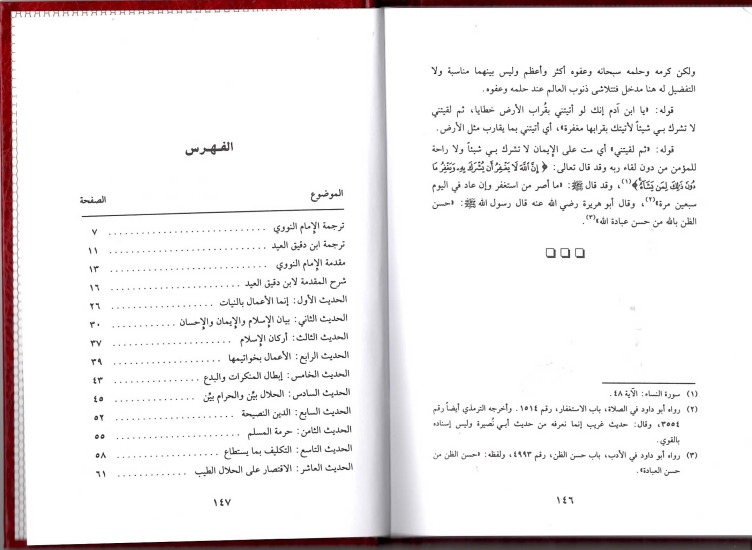 ولكن كرمه وحلمه سبحانه وعفوه أكثر وأعظم وليس بينهما مناسبة ولا
التفضيل له هنا مدخل فتتلاشى ذنوب العالم عند حلمه وعفوه.
قوله: «يا ابن آدم إنك لو أتيتني بقُراب الأرض خطايا، ثم لقيتني
لا تشرك بي شيئاً لأتيتك بقرابها مغفرة»، أي أتيتني بما يقارب مثل الأرض.
قوله: «ثم لقيتني» أي مت على الإيمان لا تشرك بي شيئاً ولا راحة
للمؤمن من دون لقاء ربه وقد قال تعالى: ﴿إِنَّ اللَّهَ لَا يَغْفِرُ أَن يُشْرَكَ بِهِ وَيَغْفِرُ مَا
دُونَ ذَٰلِكَ لِمَن يَشَاءُ﴾(١)، وقد قال ﷺ: «ما أصر من استغفر وإن عاد في اليوم
سبعين مرة»(٢)، وقال أبو هريرة رضي الله عنه قال رسول الله ﷺ: «حسن
الظن بالله من حسن عبادة الله»(٣).
(١) سورة النساء: الآية ٤٨.
(٢) رواه أبو داود في الصلاة، باب الاستغفار، رقم ١٥١٤. وأخرجه الترمذي أيضاً رقم
٣٥٥٤، وقال: حديث غريب إنما نعرفه من حديث أبي نُصيرة وليس إسناده
بالقوي.
(٣) رواه أبو داود في الأدب، باب حسن الظن، رقم ٤٩٩٣، ولفظه: «حسن الظن من
حسن العبادة».
١٤٦
الفهرس
الموضوع الصفحة
ترجمة الإمام النووي ............................ ٧
ترجمة ابن دقيق العيد ............................ ١١
مقدمة الإمام النووي ............................ ١٣
شرح المقدمة لابن دقيق العيد ........................ ١٦
الحديث الأول: إنما الأعمال بالنيات .................... ٢٦
الحديث الثاني: بيان الإسلام والإيمان والإحسان ............ ٣٠
الحديث الثالث: أركان الإسلام ...................... ٣٧
الحديث الرابع: الأعمال بخواتيمها .................... ٣٩
الحديث الخامس: إبطال المنكرات والبدع ................ ٤٣
الحديث السادس: الحلال بيّن والحرام بيّن ................ ٤٥
الحديث السابع: الدين النصيحة ...................... ٥٢
الحديث الثامن: حرمة المسلم ........................ ٥٥
الحديث التاسع: التكليف بما يستطاع .................. ٥٨
الحديث العاشر: الاقتصار على الحلال الطيب ............ ٦١
١٤٧